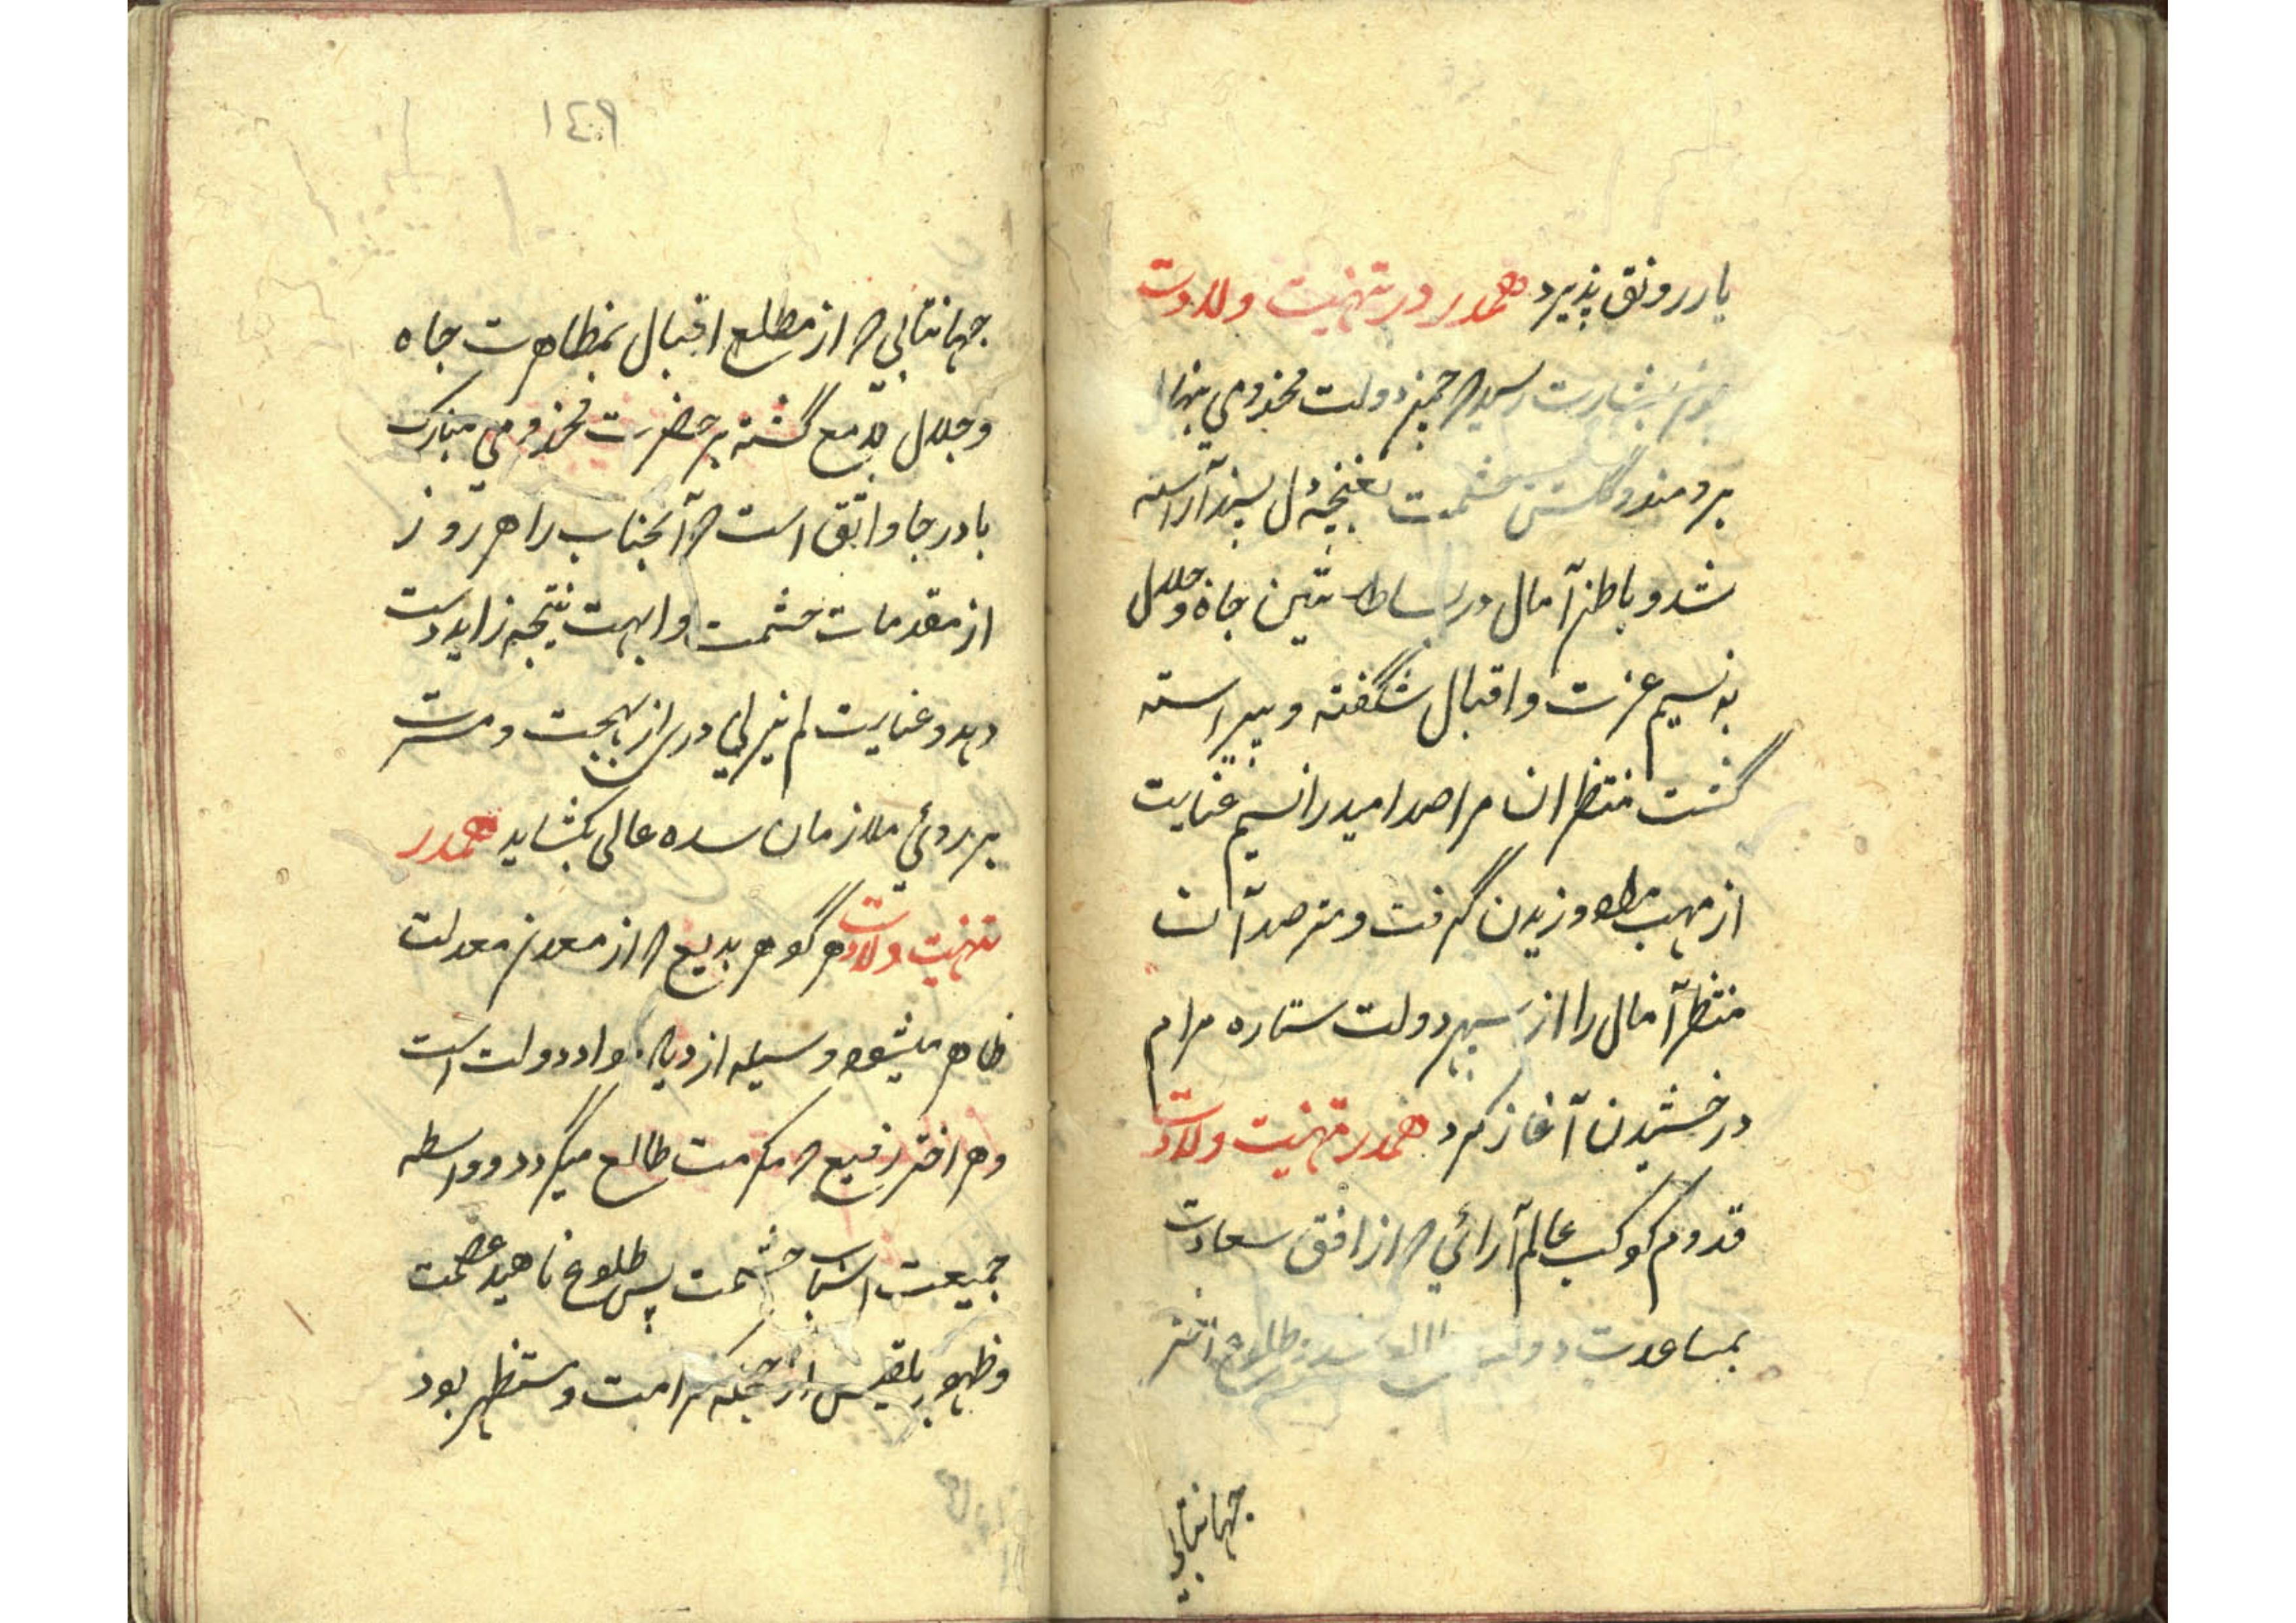 یار رونق پذیرد همدر در تهنیت ولادت
چون بشارت رسید که چمن دولت مخدومی بنهال
برومند و گلشن حشمت بغنچه دل پسند آراسته
شد و باطن آمال در بساط جاه و جلال
به نسیم عزت و اقبال شگفته و پیراسته
گشت منتظران مراصد امید را نسیم عنایت
از مهب وزیدن گرفت و مترصدان
منتظر آمال را از سپهر دولت ستاره مرام
درخشیدن آغاز کرد همدر تهنیت ولادت
قدوم کوکب عالم آرائی که از افق سعادت
بمساعدت دولت طلوع
جهانتابی
١٤٩
جهانتابی که از مطلع اقبال بمظاهرت جاه
و جلال لامع گشته بر حضرت مخدومی مبارک
باد رجا واثق است که آنجناب را هر روز
از مقدمات حشمت و ابهت نتیجه زاید دست
دهد و عنایت لم یزلی دری از بهجت و مسرت
بر روئی ملازمان سده عالی بکشاید همدر
تهنیت ولادت هر گوهر بدیع که از معدن معدلت
ظاهر میشود وسیله ازدیاد مواد دولت است
و هر اختر رفیع که مکرمت طالع میگردد واسطه
جمیعت اسباب حشمت پس طلوع ناهید عصمت
و ظهور بلقیس از کرامت و مستظهر بود